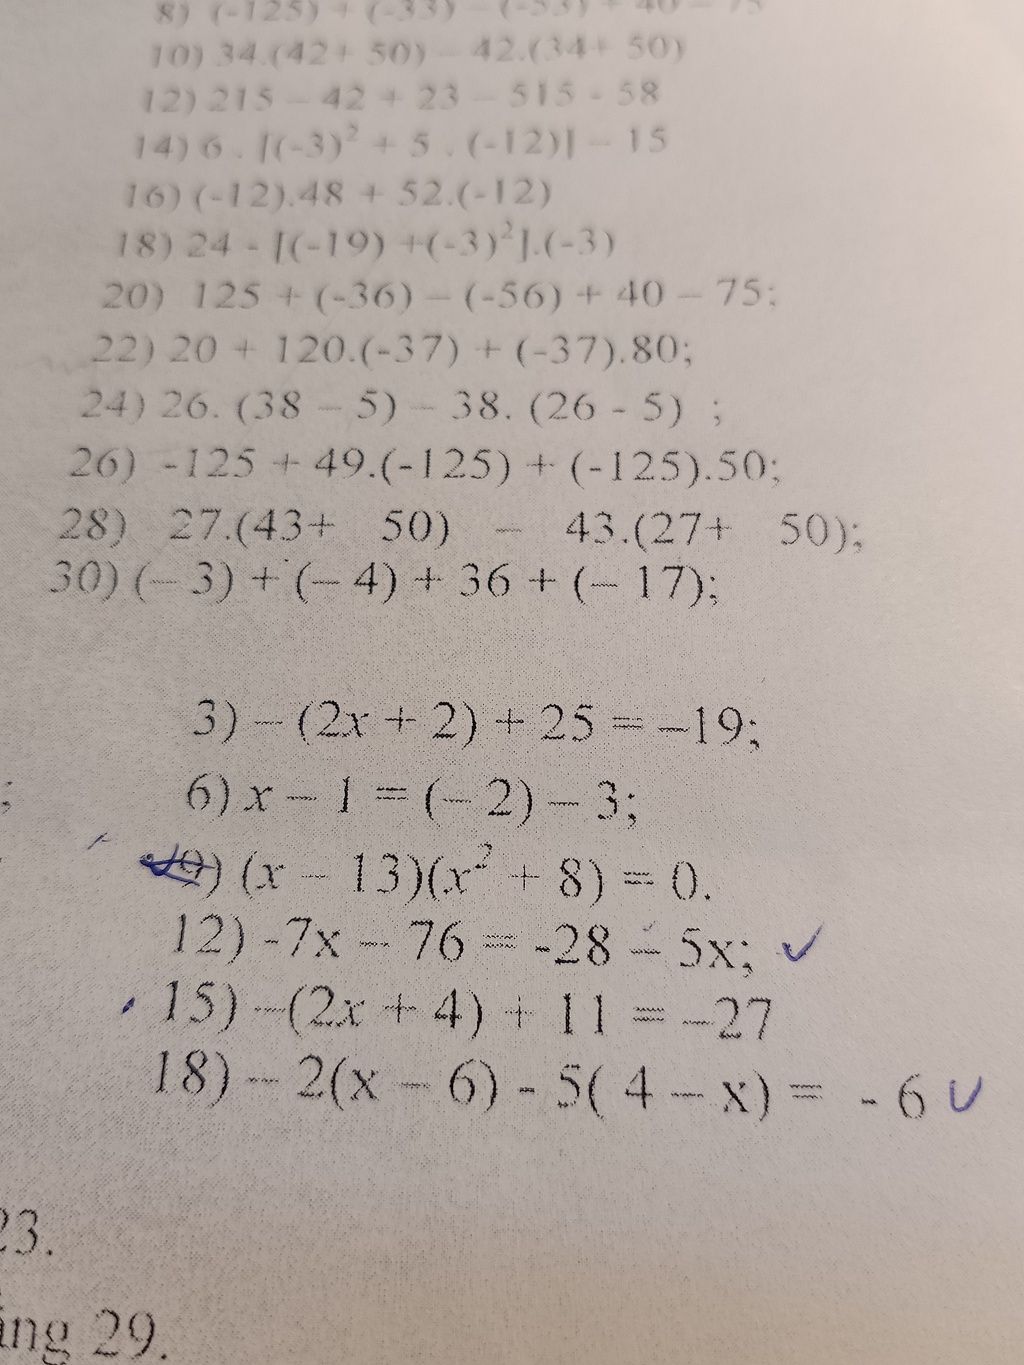 8) (-125) + (-33) – (-53) + 40 – 75
10) 34.(42+ 50) – 42.(34+ 50)
12) 215 – 42 + 23 – 515 - 58
14) 6 . [(-3)² + 5 . (-12)] – 15
16) (-12).48 + 52.(-12)
18) 24 - [(-19) +(-3)²].(-3)
20) 125 + (-36) – (-56) + 40 – 75;
22) 20 + 120.(-37) + (-37).80;
24) 26. (38 – 5) – 38. (26 - 5) ;
26) -125 + 49.(-125) + (-125).50;
28) 27.(43+ 50) – 43.(27+ 50);
30) (– 3) + (– 4) + 36 + (– 17);
3) – (2x + 2) + 25 = –19;
; 6) x – 1 = (– 2) – 3;
9) (x – 13)(x² + 8) = 0.
12) -7x – 76 = -28 – 5x;
15) –(2x + 4) + 11 = –27
18) – 2(x – 6) - 5( 4 – x) = - 6
23.
29.